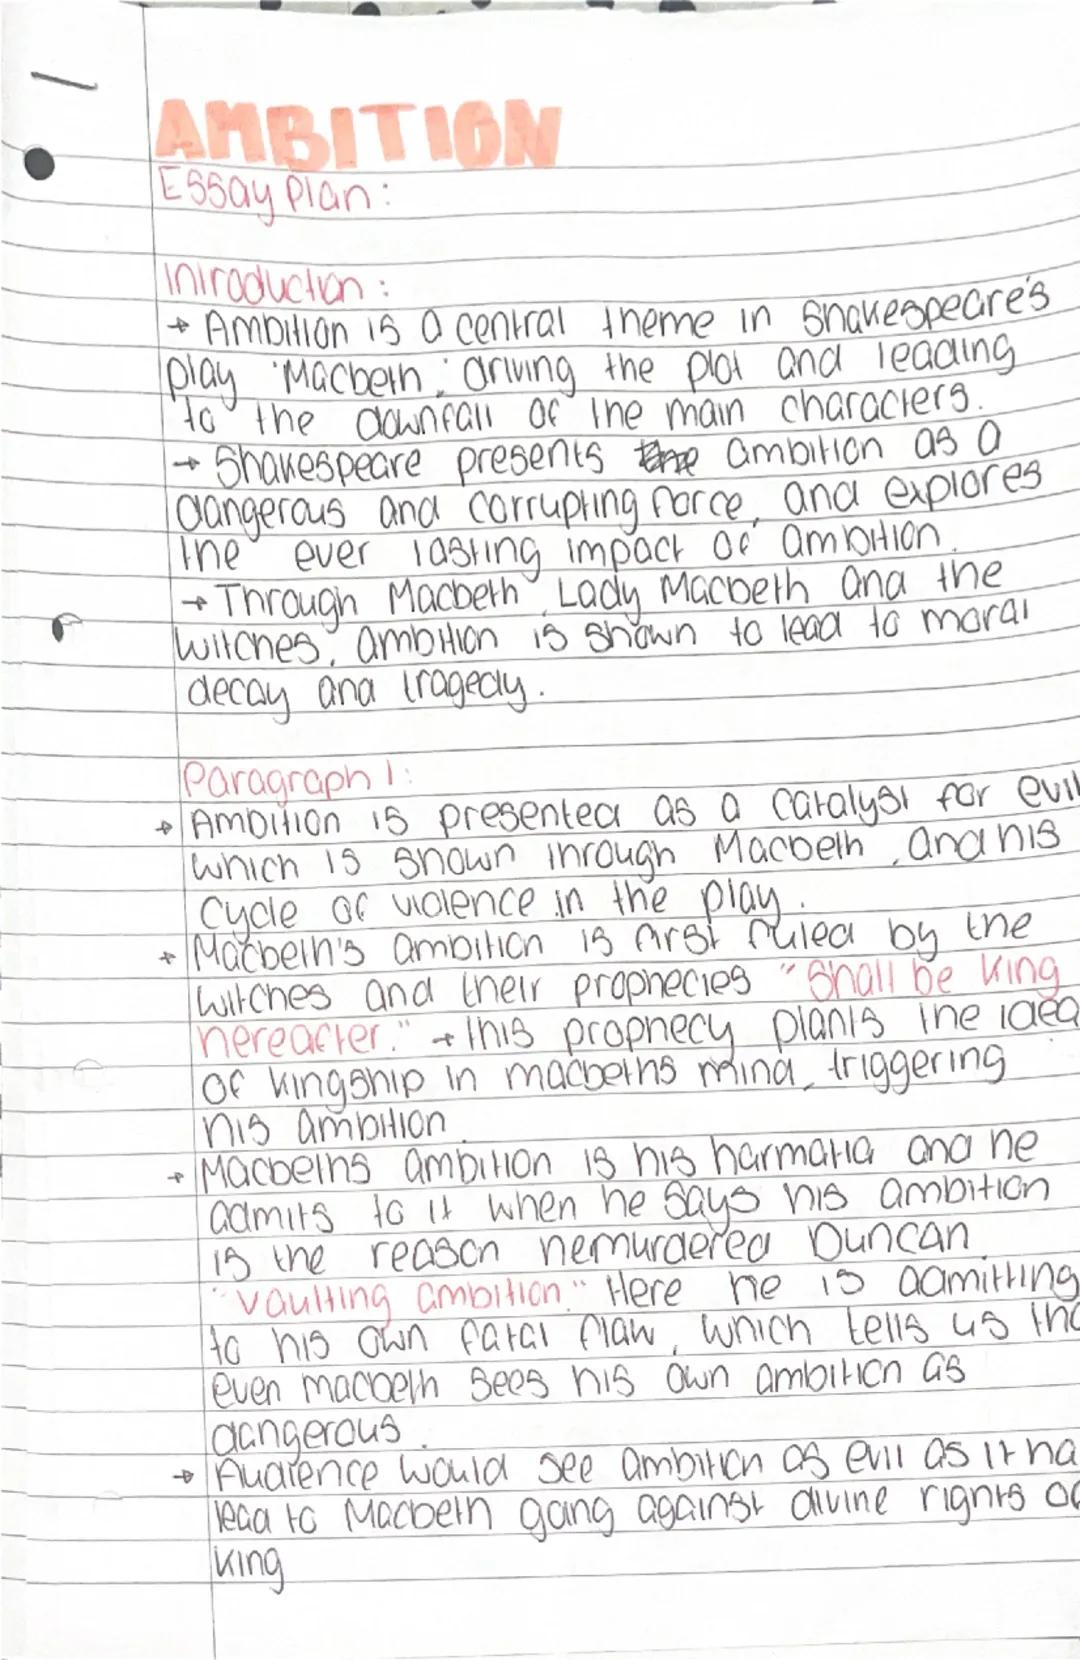 AMBITION
Essay Plan:
Introduction:
→ Ambition is a central theme in Shakespeare's
play 'Macbeth', driving the plot and leading
to the downfall of the main characters.
→ Shakespeare presents the ambition as a
dangerous and corrupting force, and explores
the ever lasting impact of ambition.
→ Through Macbeth, Lady Macbeth and the
witches, ambition is shown to lead to moral
decay and tragedy.
Paragraph 1:
→ Ambition is presented as a catalyst for evil
which is shown through Macbeth, and his
cycle of violence in the play.
→ Macbeth's ambition is first fuled by the
witches and their prophecies "Shall be king
hereafter." → this prophecy plants the idea
of kingship in macbeths mind, triggering
his ambition.
→ Macbeths ambition is his harmatia and he
admits to it when he says his ambition
is the reason he murdered Duncan.
"vaulting ambition." Here he is admitting
to his own fatal flaw, which tells us tha
even macbeth sees his own ambition as
dangerous.
→ Audience would see ambition as evil as it ha
lead to Macbeth going against divine rights of
king